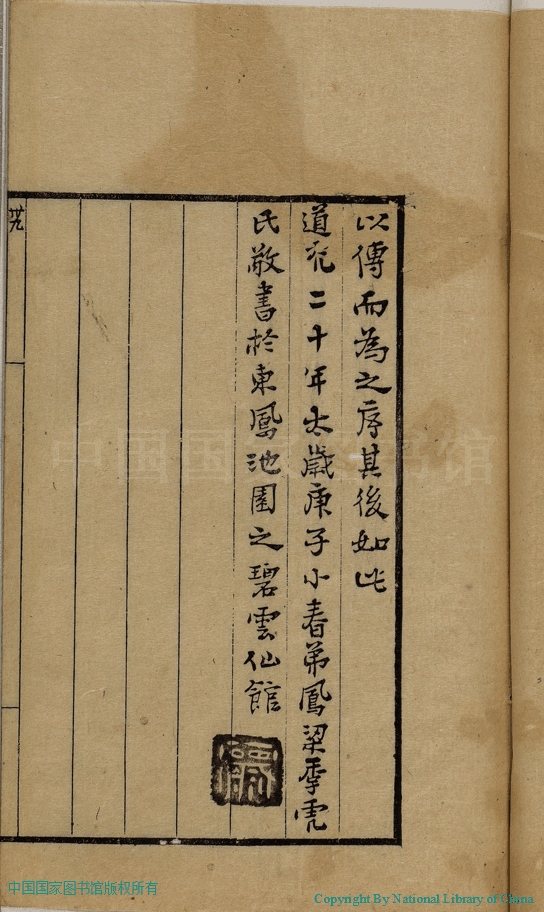 以傳而為之序其後如此
道光二十年太歲庚子小春弟鳳梁季虎
氏敬書於東鳳池園之碧雲仙館
中国国家图书馆
中国国家图书馆版权所有
Copyright By National Library of China